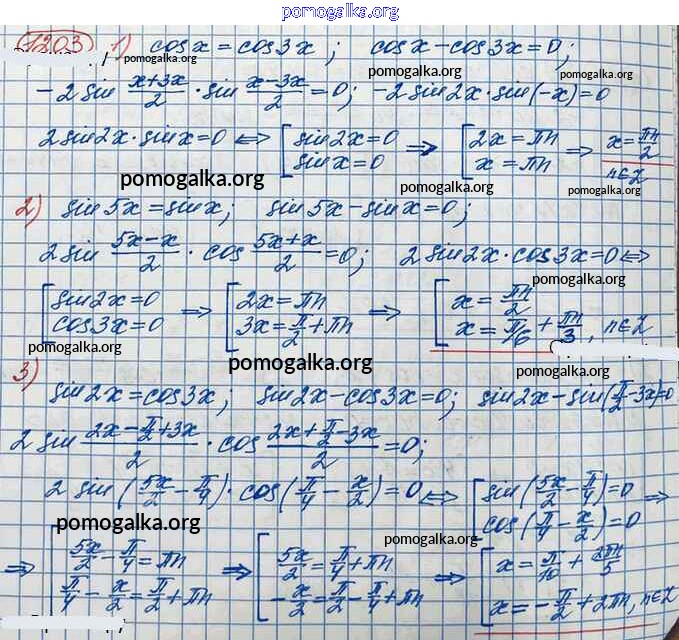 pomogalka.org
1203 1) cos x = cos 3x; cos x - cos 3x = 0;
pomogalka.org
pomogalka.org
-2 sin (x+3x)/2 · sin (x-3x)/2 = 0; -2 sin 2x · sin(-x) = 0
pomogalka.org
2 sin 2x · sin x = 0 <=> [ sin 2x = 0 => [ 2x = πn => x = πn/2
sin x = 0 x = πn n∈Z
pomogalka.org pomogalka.org pomogalka.org
2) sin 5x = sin x; sin 5x - sin x = 0;
2 sin (5x-x)/2 · cos (5x+x)/2 = 0; 2 sin 2x · cos 3x = 0 <=>
pomogalka.org
[ sin 2x = 0 => [ 2x = πn => [ x = πn/2
cos 3x = 0 3x = π/2 + πn x = π/6 + πn/3, n∈Z
pomogalka.org
pomogalka.org pomogalka.org
3) sin 2x = cos 3x; sin 2x - cos 3x = 0; sin 2x - sin(π/2 - 3x) = 0
2 sin (2x - π/2 + 3x)/2 · cos (2x + π/2 - 3x)/2 = 0;
2 sin (5x/2 - π/4) · cos (π/4 - x/2) = 0 <=> [ sin (5x/2 - π/4) = 0 =>
cos (π/4 - x/2) = 0
pomogalka.org pomogalka.org
=> [ 5x/2 - π/4 = πn => [ 5x/2 = π/4 + πn => [ x = π/10 + 2πn/5
π/4 - x/2 = π/2 + πn -x/2 = π/2 - π/4 + πn x = -π/2 + 2πn, n∈Z